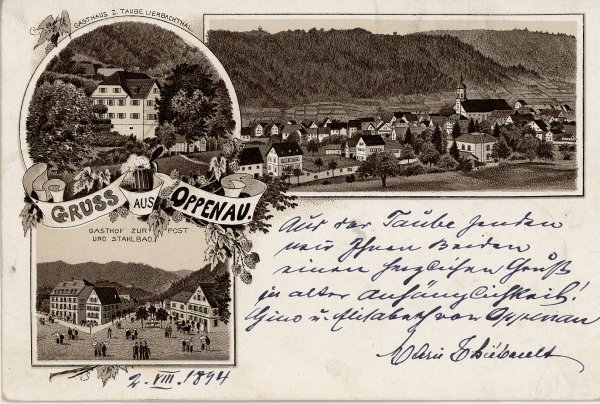 GASTHAUS Z. TAUBE LIERBACHTHAL
GRUSS AUS OPPENAU.
GASTHOF ZUR POST
UND STAHLBAD.
Aus der Taube senden
wir Ihnen Beiden
einen herzlichen Gruß
in alter Anhänglichkeit!
Gino u. Elisabeth von Oppenau
Marie
2. VIII. 1894